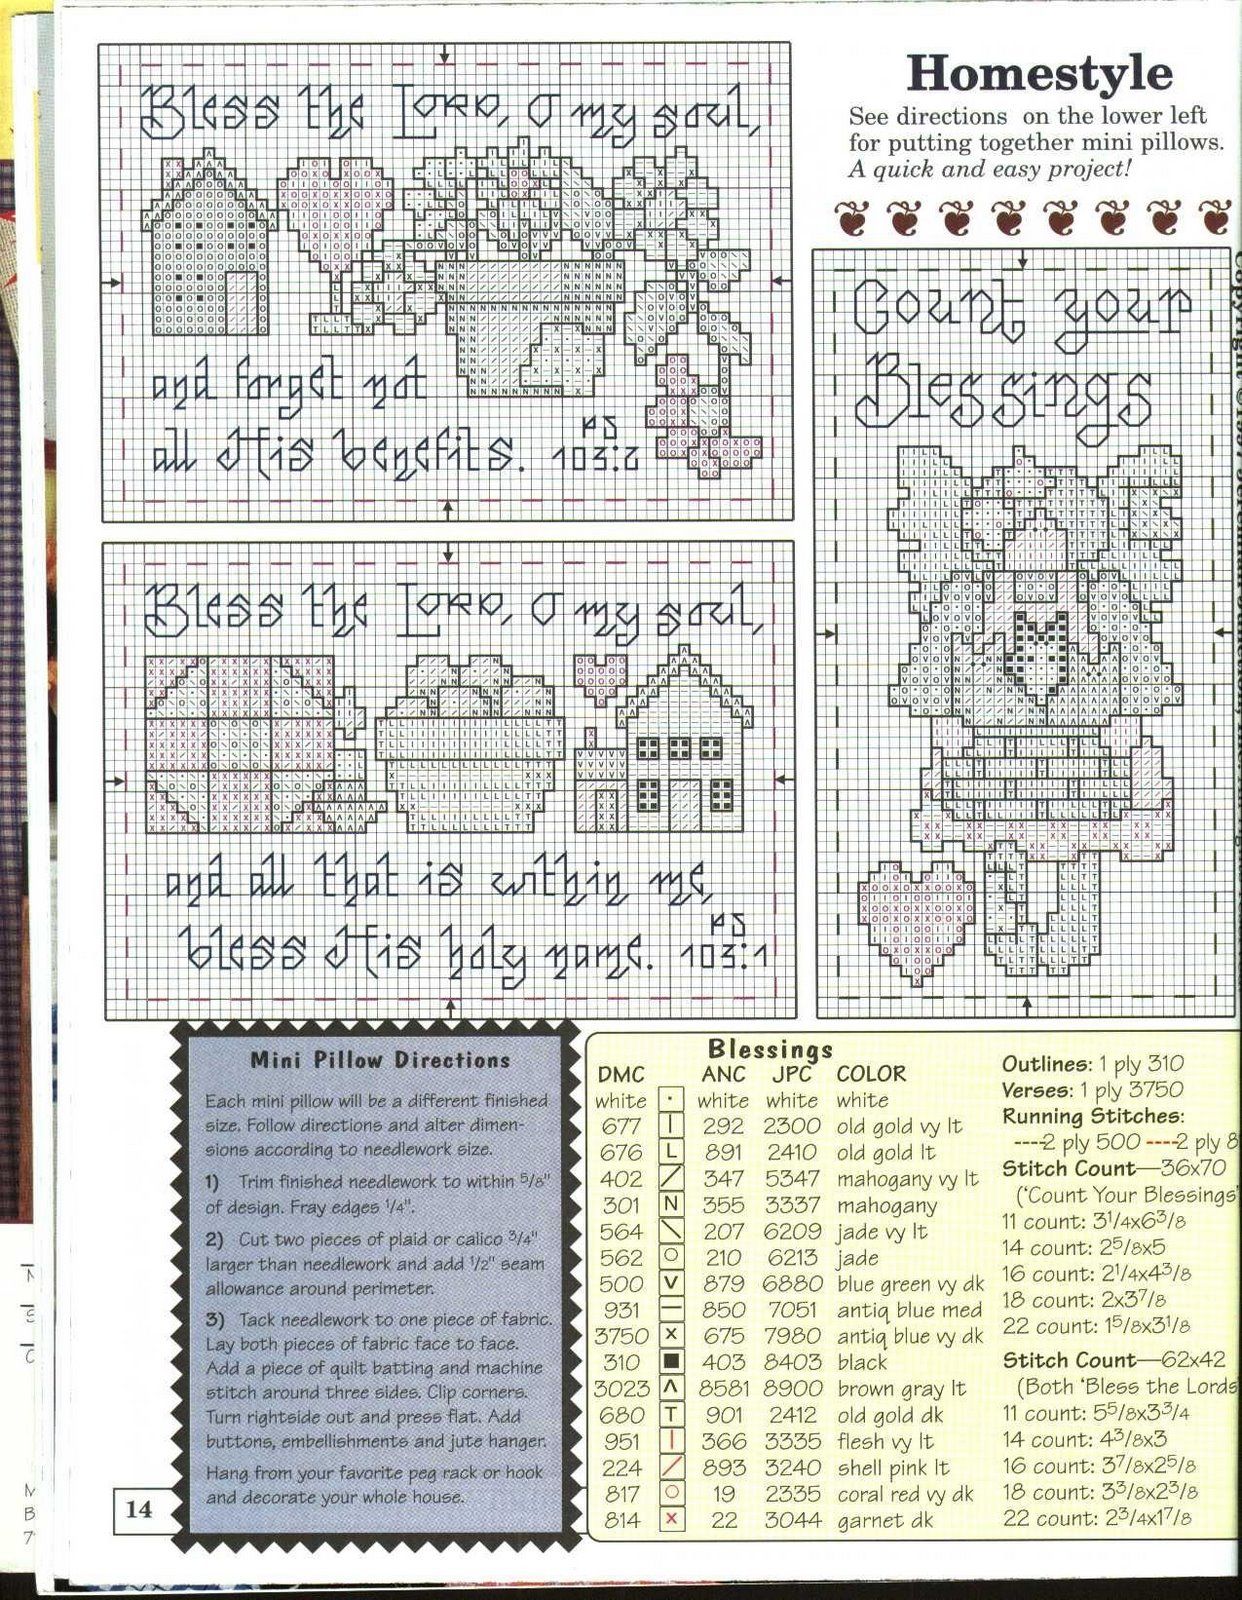 Bless the Lord, O my soul,
and forget not
all His benefits. PS
103:2
Homestyle
See directions on the lower left
for putting together mini pillows.
A quick and easy project!
Count your
Blessings
Bless the Lord, O my soul,
and all that is within me,
bless His holy name. PS
103:1
Mini Pillow Directions
Each mini pillow will be a different finished
size. Follow directions and alter dimen-
sions according to needlework size.
1) Trim finished needlework to within 5/8"
of design. Fray edges 1/4".
2) Cut two pieces of plaid or calico 3/4"
larger than needlework and add 1/2" seam
allowance around perimeter.
3) Tack needlework to one piece of fabric.
Lay both pieces of fabric face to face.
Add a piece of quilt batting and machine
stitch around three sides. Clip corners.
Turn rightside out and press flat. Add
buttons, embellishments and jute hanger.
Hang from your favorite peg rack or hook
and decorate your whole house.
14
Blessings
DMC ANC JPC COLOR
white · white white white
677 I 292 2300 old gold vy lt
676 L 891 2410 old gold lt
402 / 347 5347 mahogany vy lt
301 N 355 3337 mahogany
564 \ 207 6209 jade vy lt
562 O 210 6213 jade
500 V 879 6880 blue green vy dk
931 — 850 7051 antiq blue med
3750 X 675 7980 antiq blue vy dk
310 ■ 403 8403 black
3023 ʌ 8581 8900 brown gray lt
680 T 901 2412 old gold dk
951 | 366 3335 flesh vy lt
224 / 893 3240 shell pink lt
817 O 19 2335 coral red vy dk
814 x 22 3044 garnet dk
Outlines: 1 ply 310
Verses: 1 ply 3750
Running Stitches:
----2 ply 500 ----2 ply 8
Stitch Count—36x70
('Count Your Blessings'
11 count: 3 1/4x6 3/8
14 count: 2 5/8x5
16 count: 2 1/4x4 3/8
18 count: 2x3 7/8
22 count: 1 5/8x3 1/8
Stitch Count—62x42
(Both 'Bless the Lords
11 count: 5 5/8x3 3/4
14 count: 4 3/8x3
16 count: 3 7/8x2 5/8
18 count: 3 3/8x2 3/8
22 count: 2 3/4x1 7/8